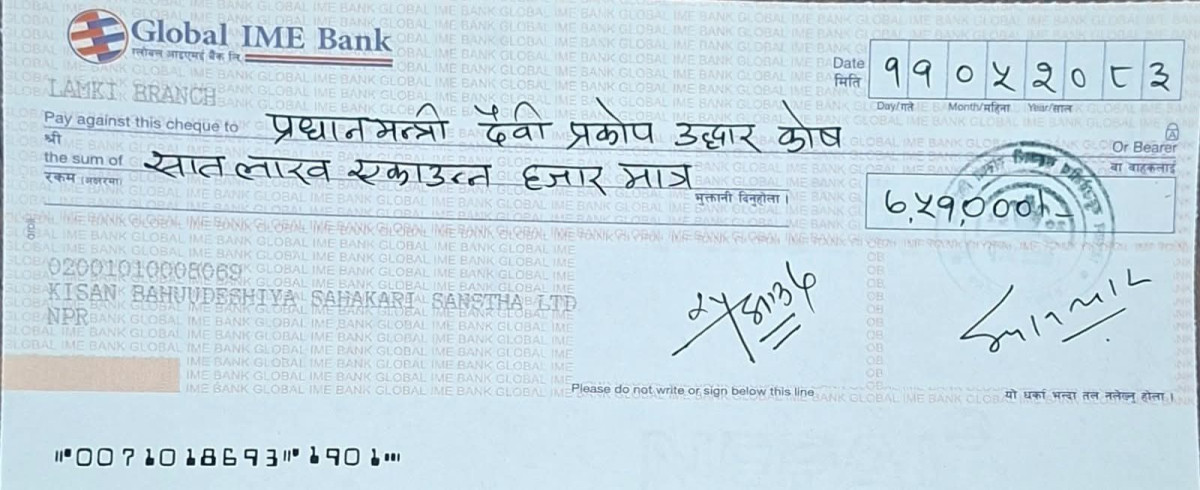 Global IME Bank
ग्लोबल आइएमई बैंक लि.
LAMKI BRANCH
Date
मिति
११ ०५ २०८३
Day/गते Month/महिना Year/साल
Pay against this cheque to प्रधानमन्त्री दैवी प्रकोप उद्धार कोष
श्री
Or Bearer
वा वाहकलाई
the sum of सात लाख एकाउन्न हजार मात्र
रकम (अक्षरमा)
भुक्तानी दिनुहोला ।
७,५१,०००/-
02001010008069
KISAN BAHUUDESHIYA SAHAKARI SANSTHA LTD
NPR
Please do not write or sign below this line
यो धर्का भन्दा तल नलेख्नु होला ।
0071018693 1901